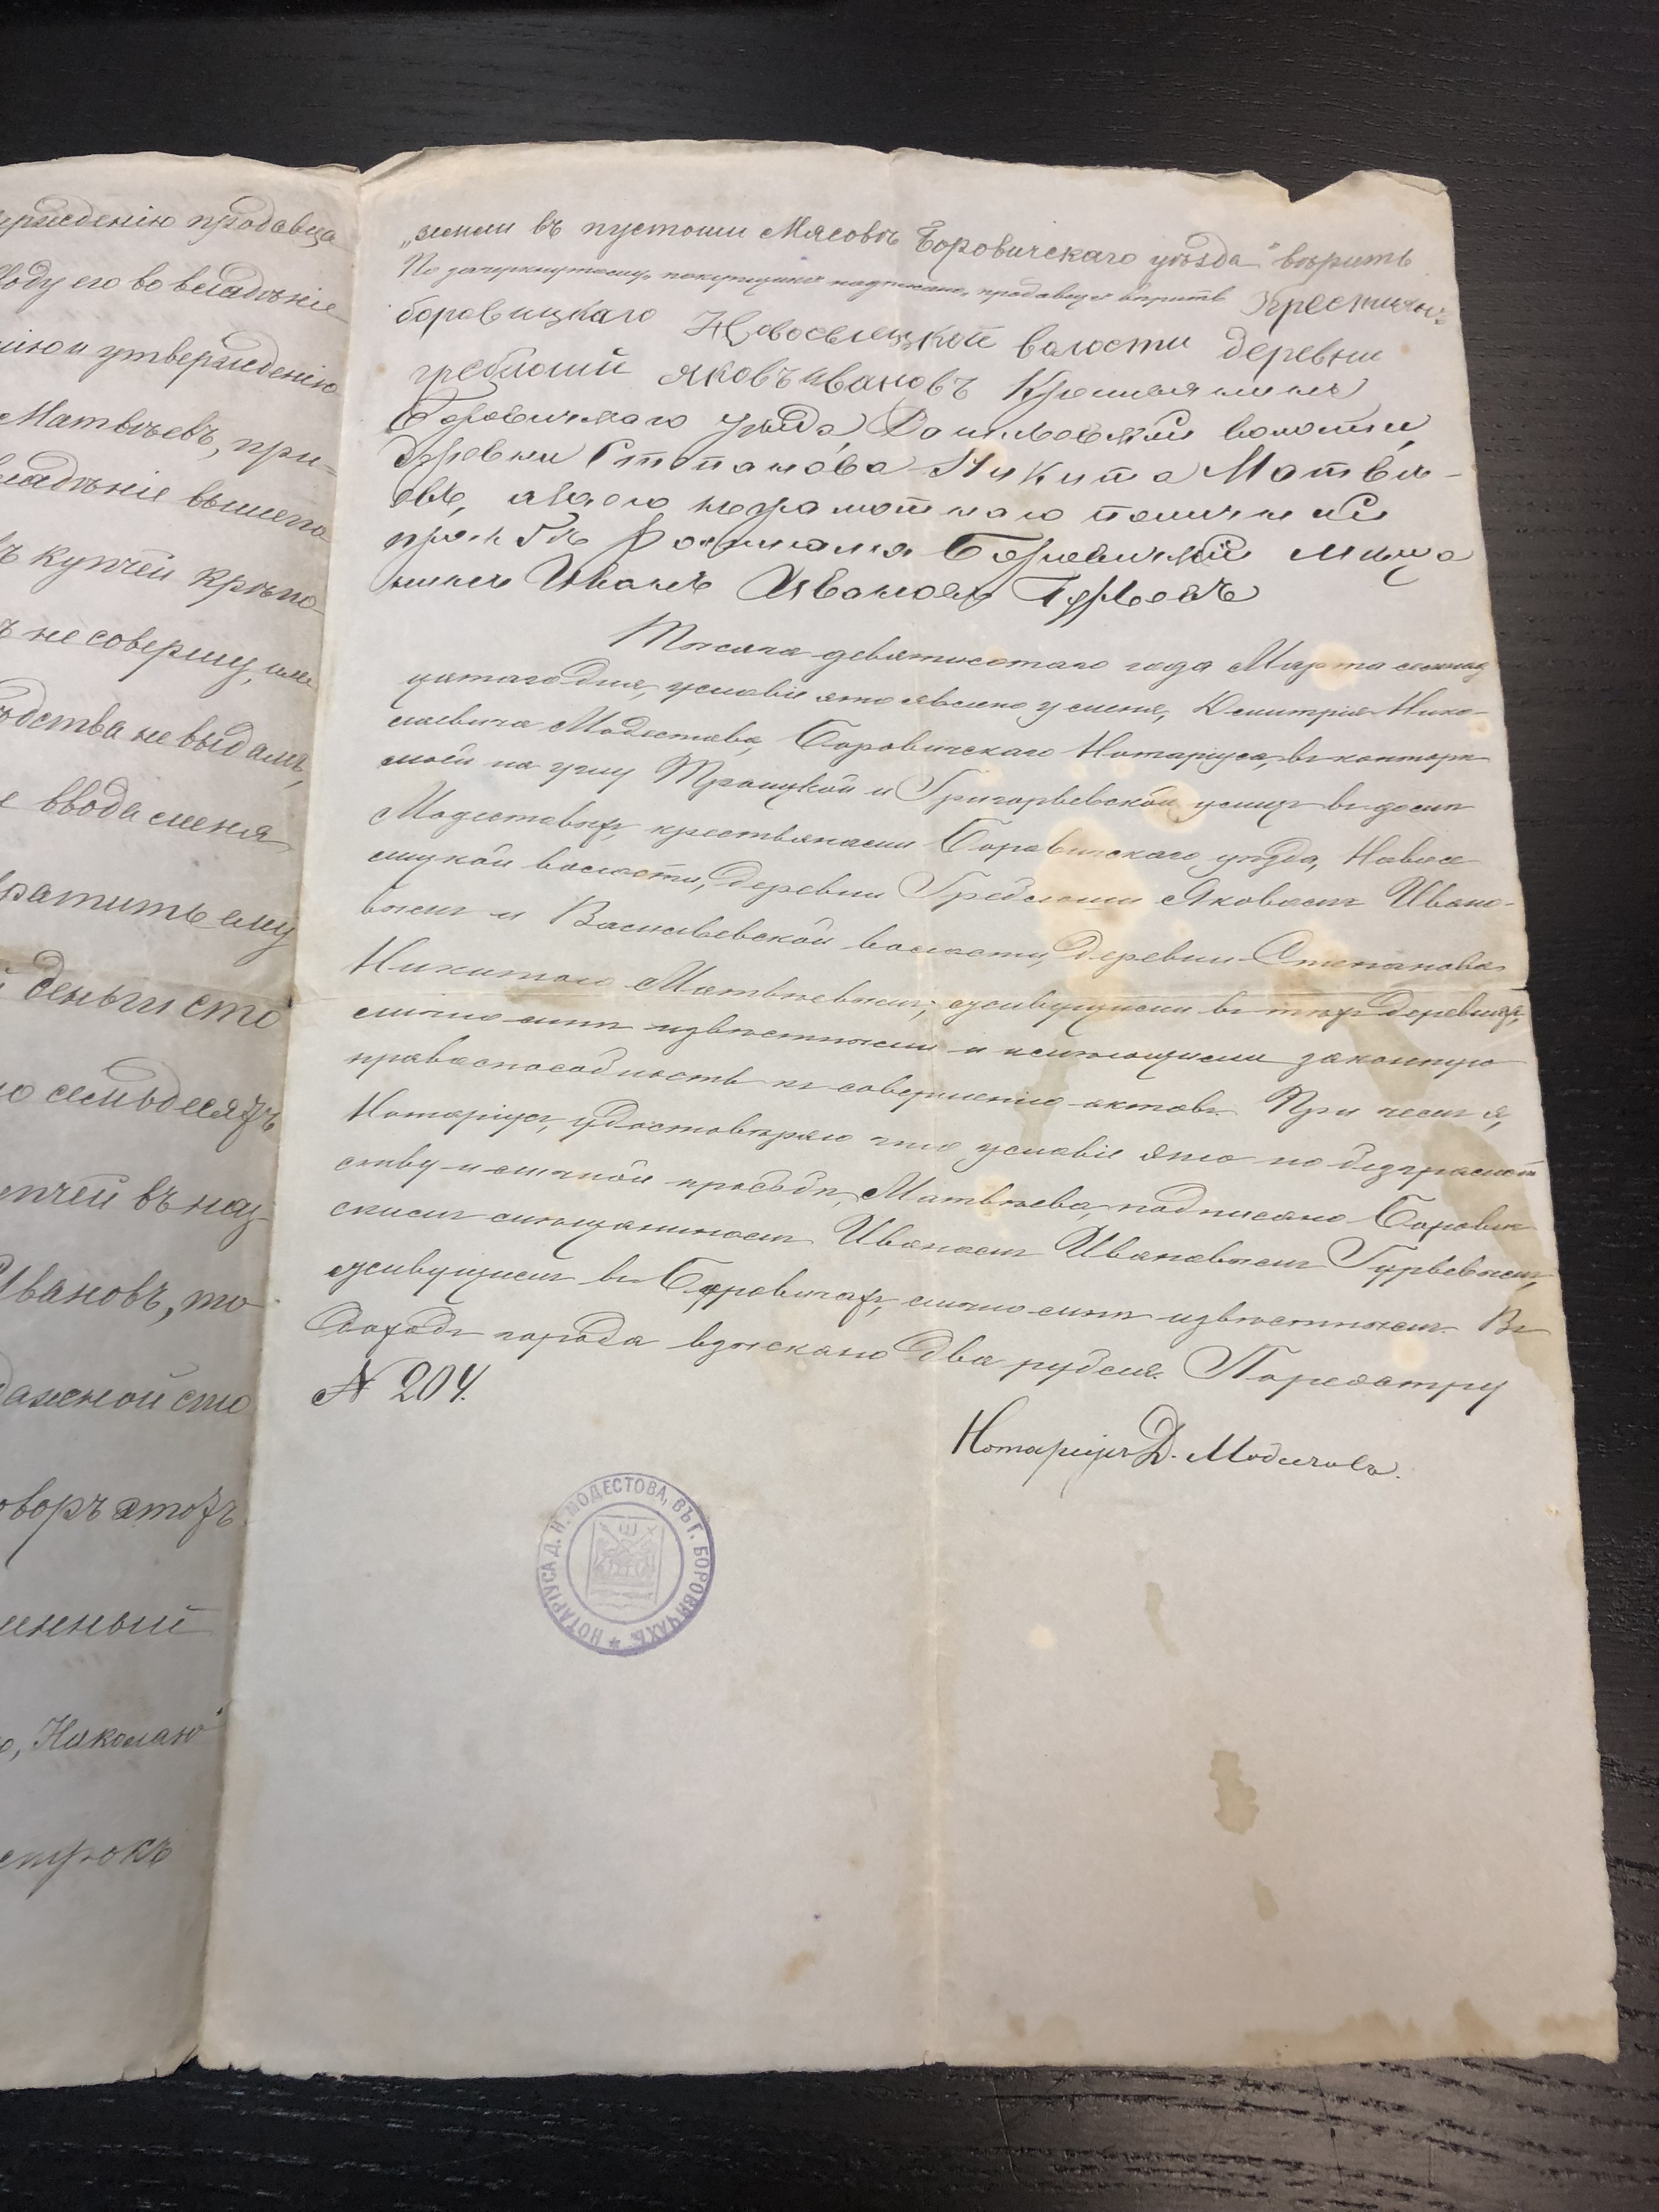 ерждению продавца
воду его во владѣніе
нію и утвержденію
Матвѣевъ, при-
ладѣніе вышепо
ъ купчей крѣпо
ъ не совершу, или
ѣдства не выдамъ,
е ввода меня
вратить ему
деньги сто
о семьдесятъ
пчей въ наз
Ивановъ, то
данной сто
оворъ этотъ
енный
о, Николаю"
строкъ
„земли въ пустоши Мясовѣ Боровичскаго уѣзда" вѣрить
По зачеркнутому покупщикъ надписано, продавецъ вѣрить Крестиянъ
боровицкаго Новоселецкой валости деревни
гребложий яковъ ивановъ Крестьянинъ
Боровичкаго уѣзда, волости,
Деревни Степанова Никита Матвѣ-
евъ, а за его неграмотнаго по личной
прозбѣ Росписался Боровичкий мѣща
нинъ Иванъ Ивановъ Гурьевъ
Тысяча девятисотаго года Марта семнад
цатаго дня, условіе это явлено у меня, Дмитрія Нико-
лаевича Модестова, Боровичскаго Нотаріуса, въ конторѣ
моей на углу Троицкой и Григорьевской улицъ въ домѣ
Модестовыхъ, крестьянами Боровичскаго уѣзда, Новосе
лицкой волости, деревни Яковомъ Ивано-
вымъ и Васильевской волости, деревни Степанова
Никитою Матвѣевымъ, живущими въ тѣхъ деревняхъ,
лично мнѣ извѣстными и имѣющими законную
правоспособность къ совершенію актовъ. При чемъ я,
Нотаріусъ, удостовѣряю что условіе это по безграмот
ству и личной просьбѣ, Матвѣева, подписано Борович
скимъ мѣщаниномъ Иваномъ Ивановымъ Гурьевымъ,
живущимъ въ Боровичахъ, лично мнѣ извѣстнымъ. Въ
доходъ города взыскано два рубля. По реестру
№ 204.
Нотаріусъ Д. Модестовъ.
НОТАРІУСА Д. Н. МОДЕСТОВА, ВЪ Г. БОРОВИЧАХЪ *